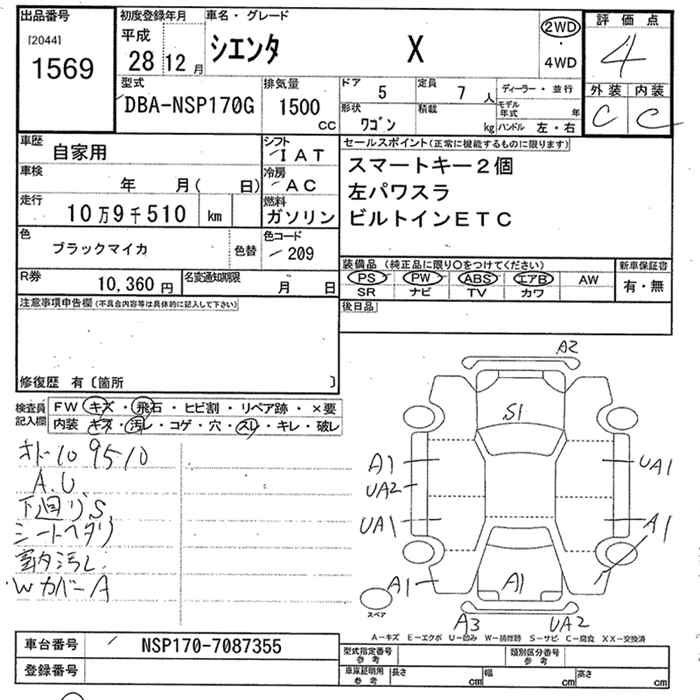 出品番号
[2044]
1569
初度登録年月
平成
28 12 月
車名・グレード
シエンタ X
2WD
・
4WD
評価点
4
外装 内装
C C
型式
DBA-NSP170G
排気量
1500
CC
ドア 5
定員 7 人
形状
ワゴン
積載
kg
ディーラー・並行
モデル年式 年
ハンドル 左・右
車歴
自家用
シフト
IAT
車検
年 月( 日)
冷房
AC
走行
10万9千510 km
燃料
ガソリン
色
ブラックマイカ
色替
色コード
209
R券
10,360 円
名変通知期限
月 日
セールスポイント(正常に機能するものに限ります)
スマートキー2個
左パワスラ
ビルトインETC
装備品 (純正品に限り○をつけてください)
PS PW ABS エアB AW
SR ナビ TV カワ
新車保証書
有・無
後日品
注意事項申告欄(不具合内容等は具体的に記入して下さい)
修復歴 有〔箇所 〕
検査員記入欄
FW キズ・飛石・ヒビ割・リペア跡・×要
内装 キズ・汚レ・コゲ・穴・スレ・キレ・破レ
オドロ 109510
A.U
下廻りS
シートヘタリ
室内汚レ
WカバーA
A2
S1
A1
UA2
UA1
A1
UA1
A1
A1
A3
UA2
スペア
A-キズ E-エクボ U-凹み W-補修跡 S-サビ C-腐食 XX-交換済
車台番号
NSP170-7087355
登録番号
型式指定番号
参考
類別区分番号
参考
車庫証明用
参考
長さ cm
幅 cm
高さ cm